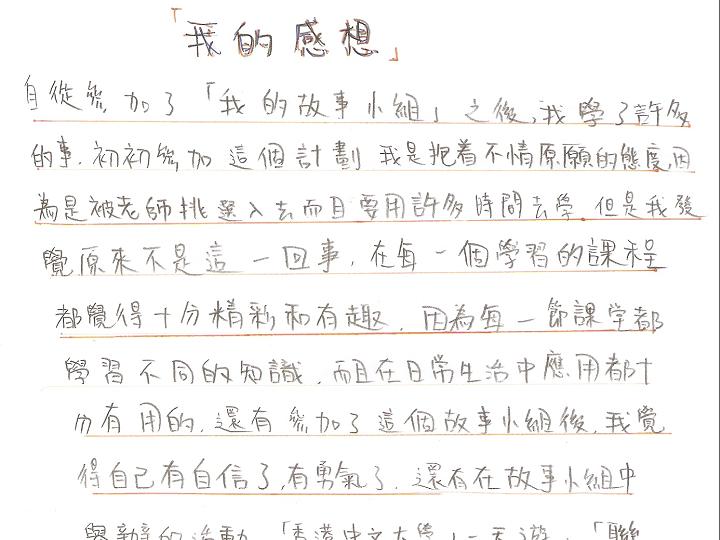 「我的感想」
自從參加了「我的故事小組」之後,我學了許多
的事.初初參加這個計劃我是抱着不情原願的態度,因
為是被老師挑選入去而且要用許多時間去學.但是我發
覺原來不是這一回事.在每一個學習的課程
都覺得十分精彩和有趣.因為每一節課堂都
學習不同的知識.而且在日常生活中應用都十
分有用的.還有參加了這個故事小組後.我覺
得自己有自信了,有勇氣了.還有在故事小組中
舉辦的活動「香港中文大學」一天遊.「聯